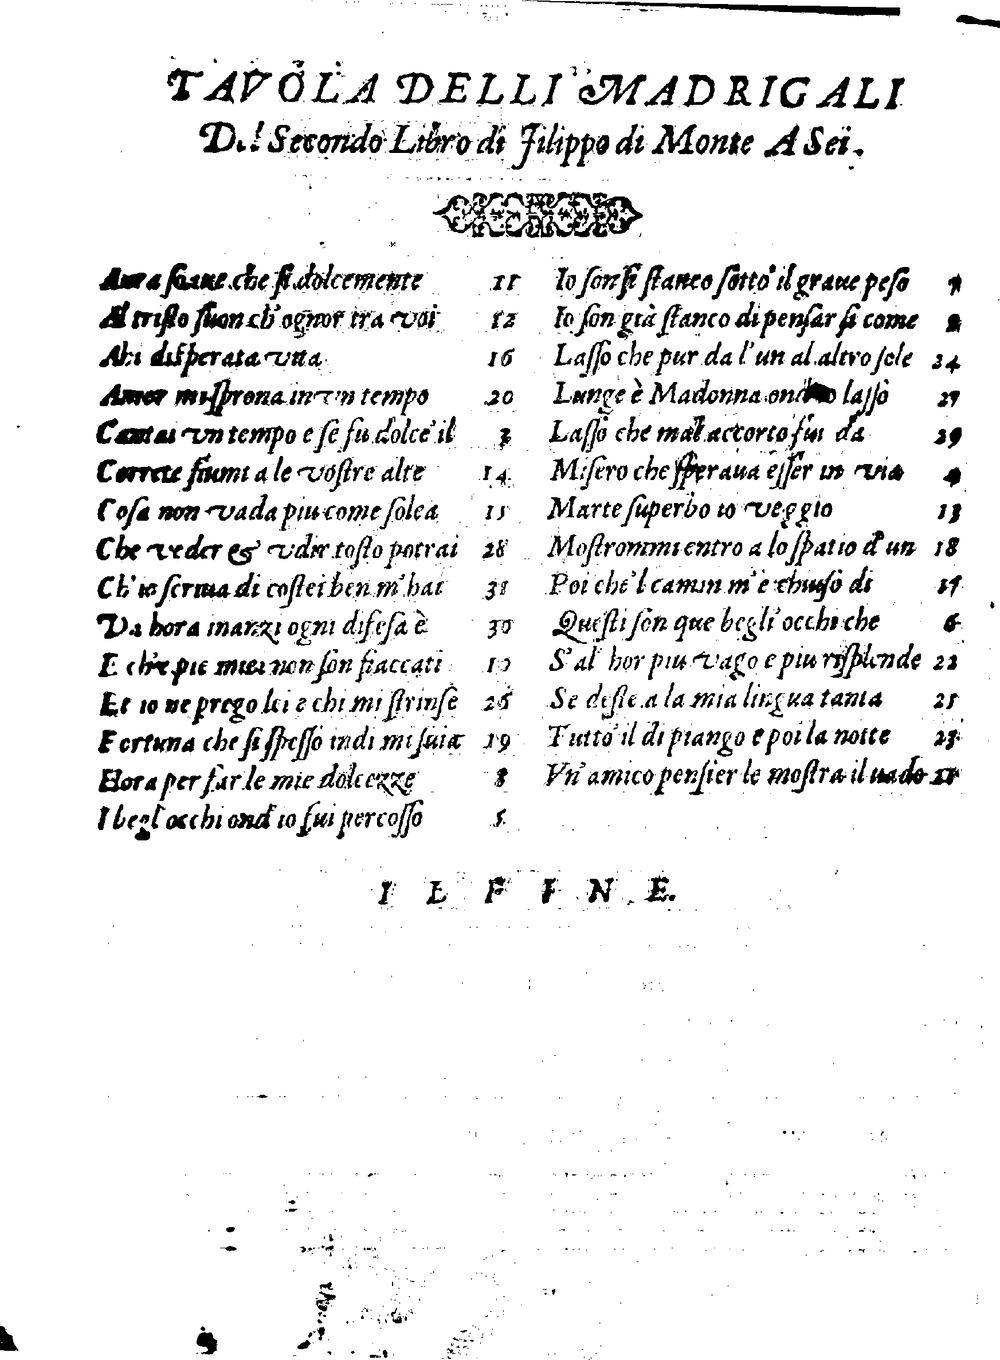 TAVOLA DELLI MADRIGALI
Del Secondo Libro di Filippo di Monte A Sei.
Aura soaue che si dolcemente 11
Al tristo suon ch'ognor tra voi 12
Ahi disperata vita 16
Amor mi sprona in vn tempo 20
Cantai vn tempo e se fu dolce il 3
Correte fiumi a le vostre alte 14
Cosa non vada piu come solea 15
Che veder & vdir tosto potrai 28
Ch'io scriua di costei ben m'hai 31
Da hora inanzi ogni difesa è 30
E ch'e pie miei non son fiaccati 10
Et io ne prego lei e chi mi strinse 26
Fortuna che si spesso indi mi suia 19
Hora per far le mie dolcezze 8
I begl'occhi ond'io fui percosso 5
Io son si stanco sotto il graue peso 1
Io son già stanco di pensar si come 2
Lasso che pur da l'un al altro sole 24
Lunge è Madonna lasso 27
Lasso che mal accorto fui da 29
Misero che speraua esser in via 4
Marte superbo io veggio 13
Mostrommi entro a lo spatio d'un 18
Poi che'l camin m'è chiuso di 17
Questi son que begli'occhi che 6
S'al'hor piu vago e piu risplende 22
Se deste a la mia lingua tanta 25
Tutto il di piango e poi la notte 23
Vn'amico pensier le mostra il uado 21
IL FINE.